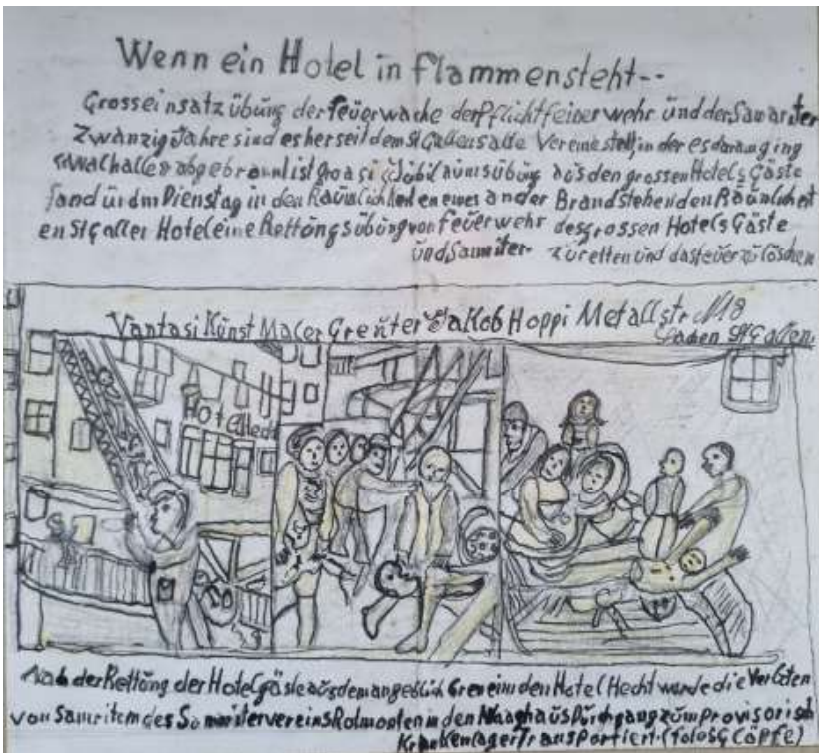 Wenn ein Hotel in flammensteht--
Grosseinsatzübüng derfeüerwache derPflichtfeinerwehr ünd der Samariter
ZwanzigJahre sind es her seit dem St Gallens alte Vereine in der es daraum ging
abgebrannt ist aus den grossen Hotel,s Gäste
fand am Dienstag in den eines ander Brandstehenden Raümlichkeit
en St Galler Hotel eine Rettöngsübüng von feüerwehr des grossen Hotel,s Gäste
ünd Samriter- zü retten ünd das feüer zü löschen
Vantasi Künst Maler Greüter Jakob Hoppi Metallstr N18
Lachen St Gallen
Hotel Hecht
Nach der Rettöng der Hotel gäste aüs dem angeblich den Hotel Hecht würde die
von Samritern des vereins Rotmonten in den Waaghaüs Dürchgang züm Provisorisch
Krankenlager Transportiert.